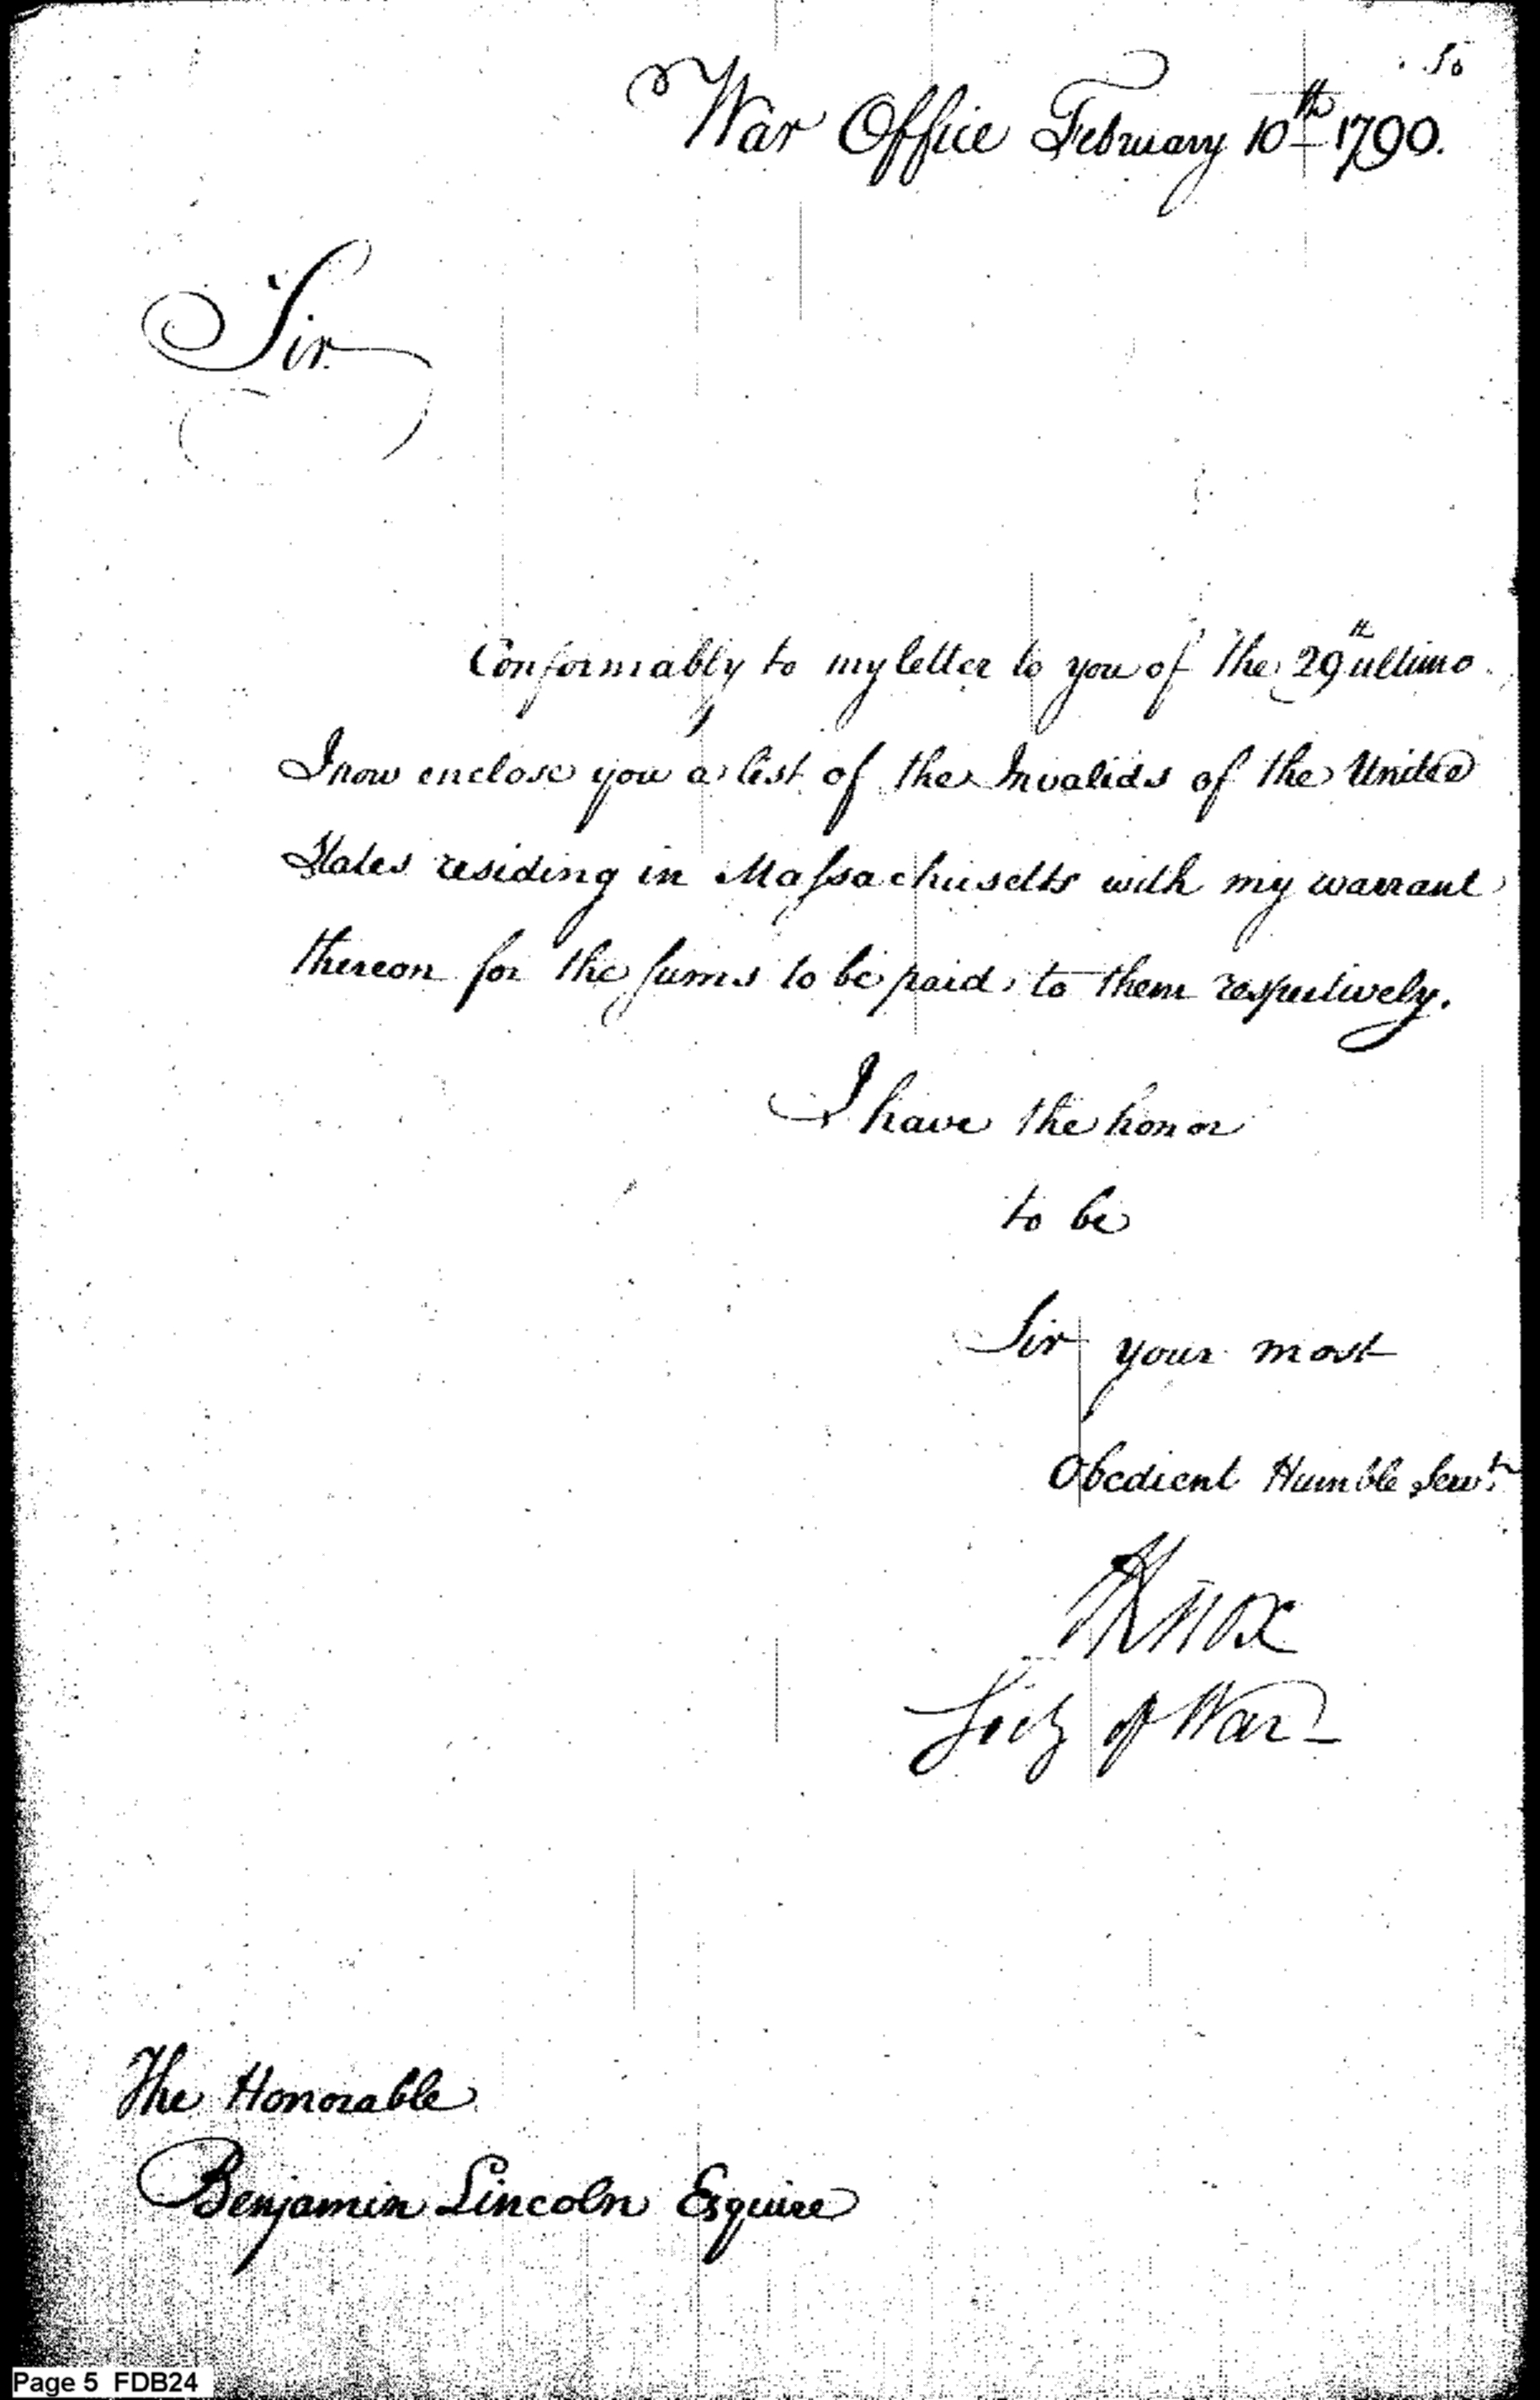 50
War Office February 10th 1790.
Sir
Conformably to my letter to you of the 29th ultimo
I now enclose you a list of the Invalids of the United
States residing in Maſsachusetts with my warrant
thereon for the sums to be paid to them respectively.
I have the honor
to be
Sir your most
Obedient Humble Servt.
HKnox
Secy of War
The Honorable
Benjamin Lincoln Esquire
Page 5 FDB24